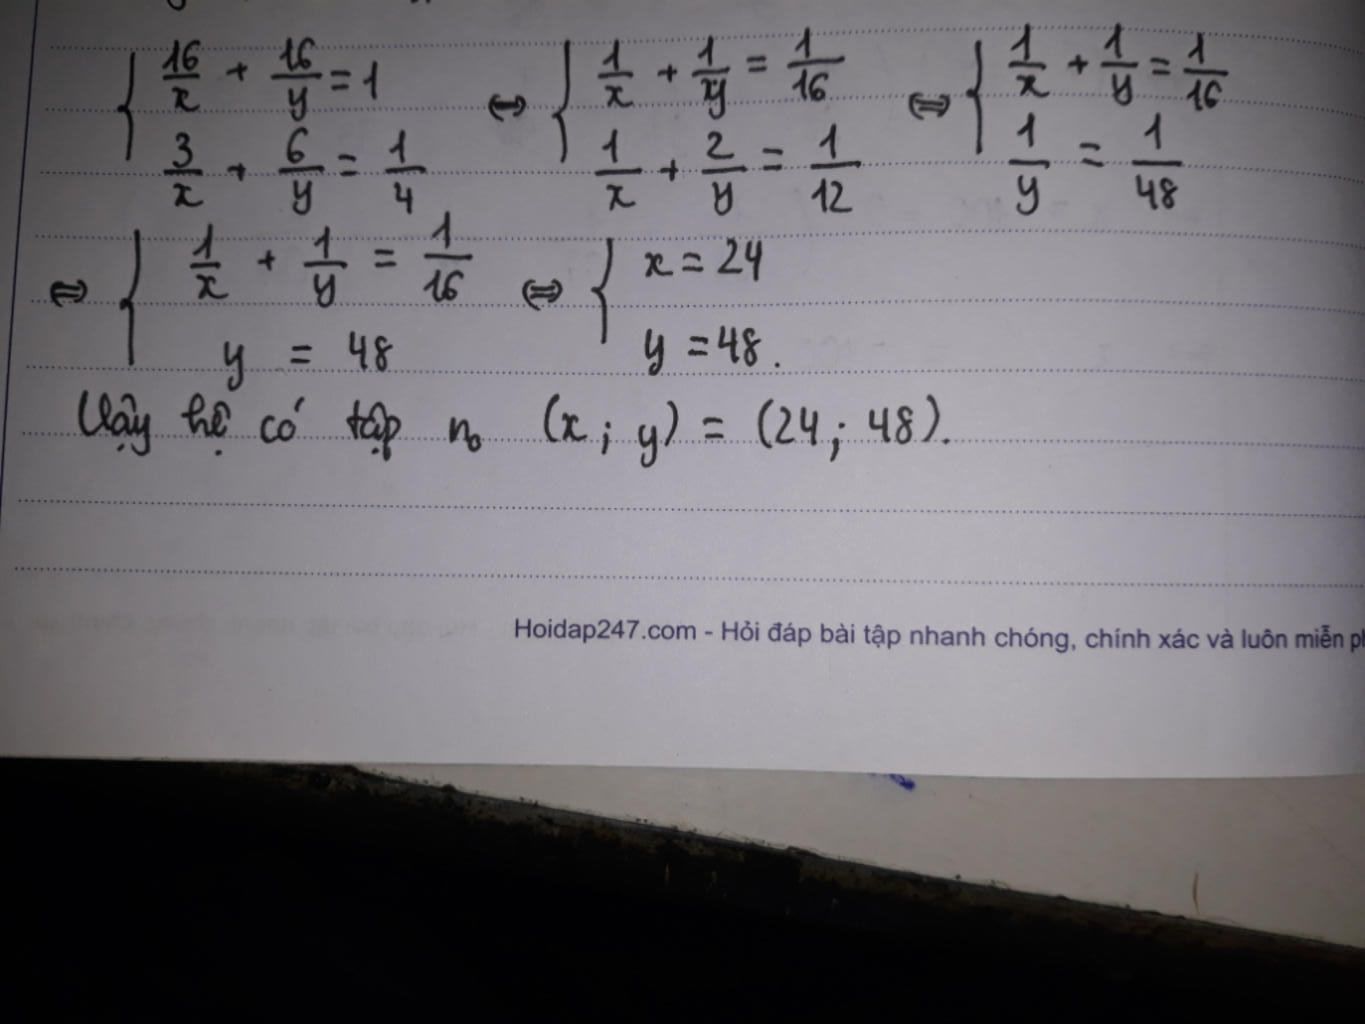 { 16/x + 16/y = 1 ⇔ { 1/x + 1/y = 1/16 ⇔ { 1/x + 1/y = 1/16
3/x + 6/y = 1/4 1/x + 2/y = 1/12 1/y = 1/48
⇔ { 1/x + 1/y = 1/16 ⇔ { x = 24
y = 48 y = 48.
Vậy hệ có tập no (x; y) = (24; 48).
Hoidap247.com - Hỏi đáp bài tập nhanh chóng, chính xác và luôn miễn